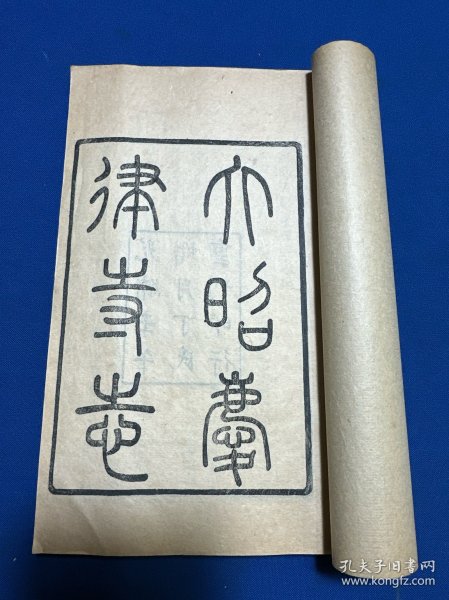 大昭慶
律寺志
孔夫子旧书网
www.kongfz.com